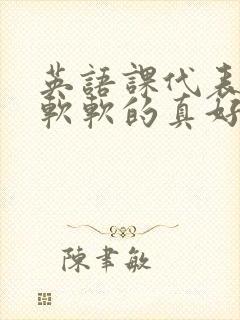 英語課代表
軟軟的真好
陳聿敏